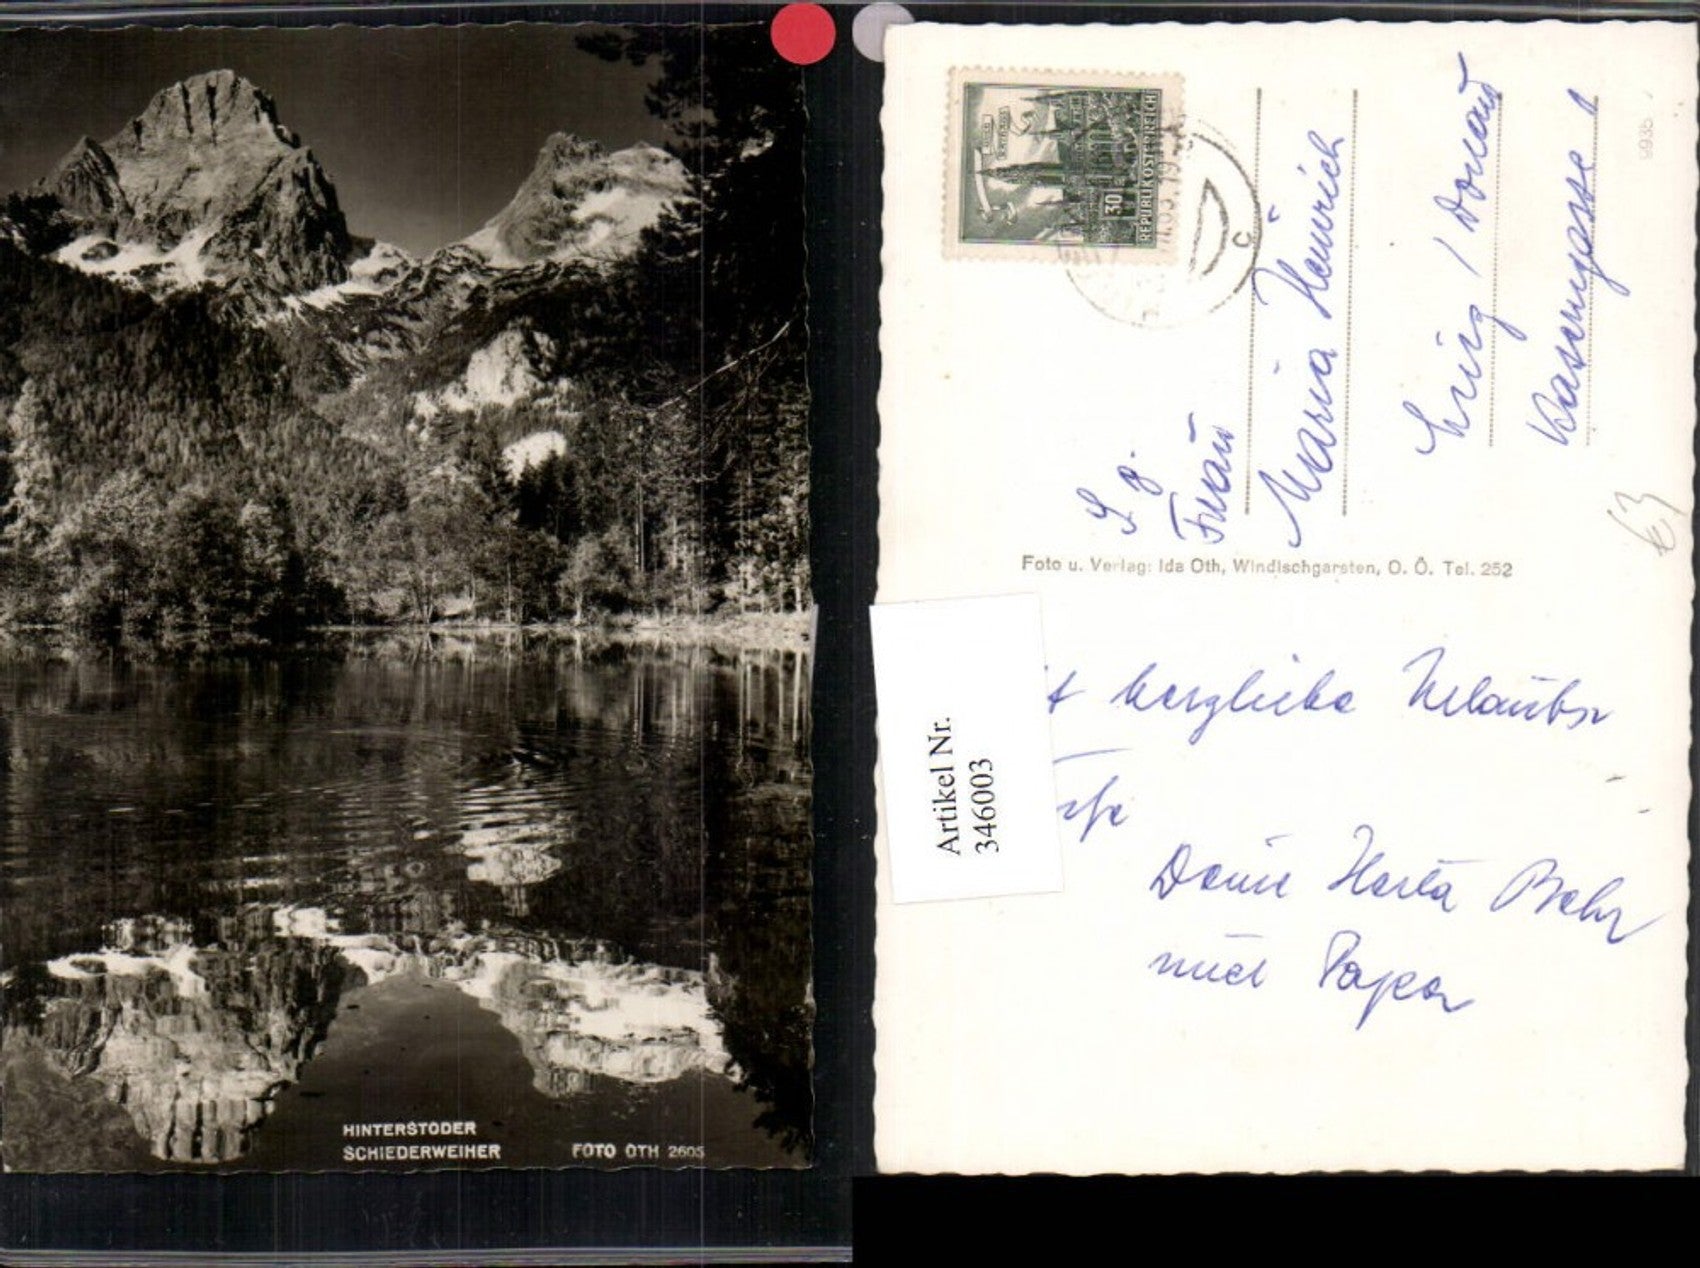 HINTERSTODER
SCHIEDERWEIHER
FOTO OTH 2605
30
REPUBLIK ÖSTERREICH
c
S. g.
Frau
Maria Heinrich
Linz / Donau
Kaserngasse 1
993b
€3
Foto u. Verlag: Ida Oth, Windischgarsten, O. Ö. Tel. 252
Artikel Nr.
346003
t herzliche Urlaubs
Deine Herta
und Papa